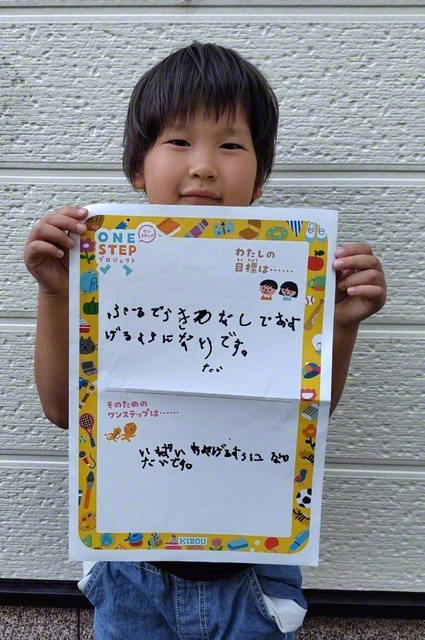 ONE
STEP
ワンステップ
プロジェクト
わたしの
もくひょう
目標は……
ぷーるでうきわなしでおよ
げるようになりです。
たい
そのための
ワンステップは……
いっぱい
たいです。
KIBOU